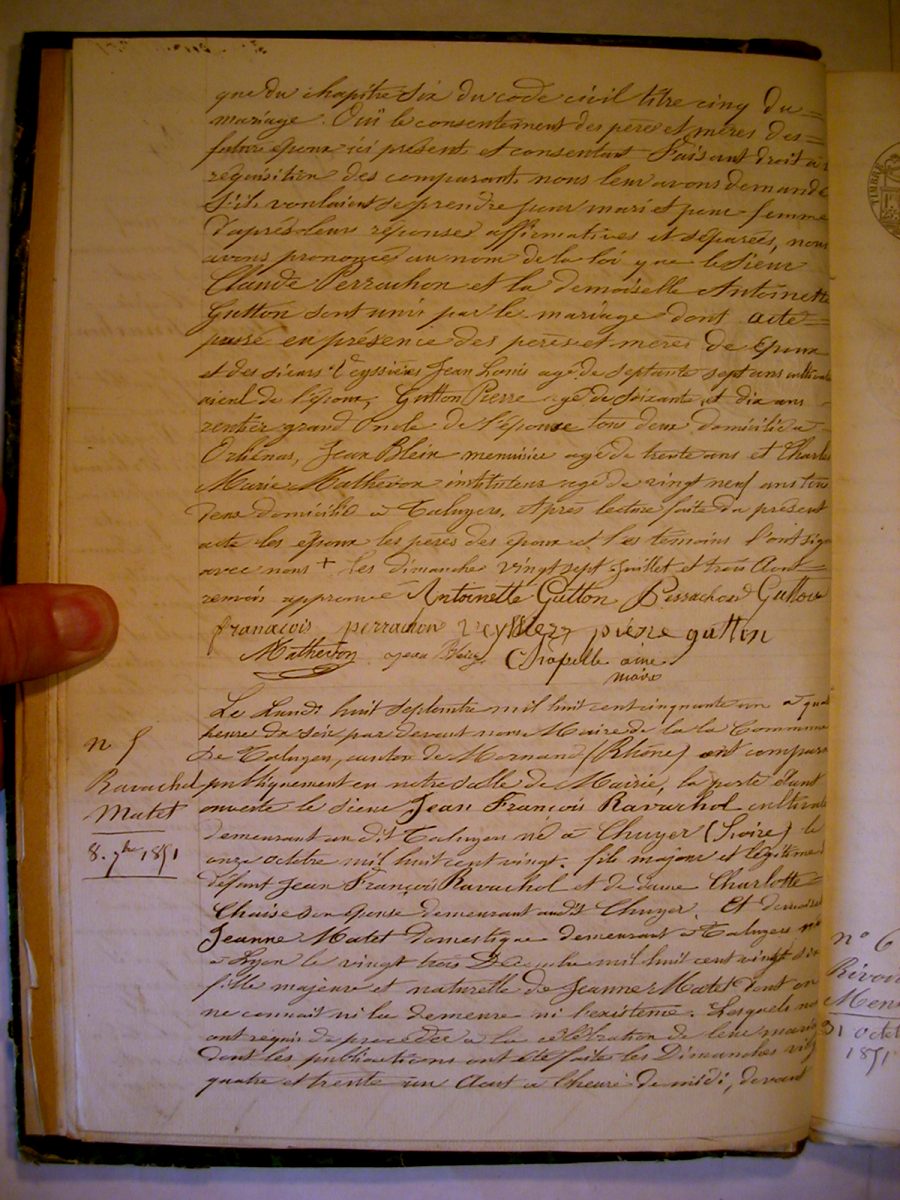 que du chapitre Six du code civil titre cinq du =
mariage. Ouï le consentement des peres et meres des =
futurs epoux ici présent et consentant Faisant droit a la
requisition des comparant, nous leur avons demandé
S'ils voulaient se prendre pour mari et pour femme
D'après leurs réponse affirmatives et séparées, nous
avons prononcé au nom de la loi que le Sieur
Claude Perrachon et la demoiselle Antoinette
Gutton sont unis par le mariage dont acte =
passé en présence des peres et meres de Epoux
et des sieurs Veyssières Jean Louis agé de Septante sept ans
aieul de l'Epoux, Gutton Pierre agé de Soixante et dix ans
rentier grand Oncle de l'épouse tous deux domicilié a
Orliénas, Jean Blein menuisier agé de trente ans et Charles
Marie Mathevon instituteur agé de vingt neuf ans tous
deux domicilié a Taluyers. Après lecture faite du présent
acte les époux les peres des epoux et les temoins l'ont signé
avec nous + Les dimanche vingt sept Juillet et trois Aout =
renvois approuvé Antoinette Gutton Perrachon Gutton
franacois perrachon pierre gutton
Mathevon jean Blein Chapelle aine
maire
n 5
Ravachol
Matet
8. 7bre 1851
Le Lundi huit Septembre mil huit cent cinquante un a quatre
heure du Soir par devant nous Maire de la la Commune
de Taluyers, canton de Mornand (Rhône) ont comparu
publiquement en notre salle de Mairie, la porte étant
ouverte le sieur Jean François Ravachol
demeurant au dit Taluyers né à Chuyer (Loire) le
onze octobre mil huit cent vingt. fils majeur et légitime d
défunt Jean François Ravachol et de dame Charlotte =
Chaise son epouse demeurant audit Chuyer. Et demoiselle
Jeanne Matet domestique demeurant a Taluyers née
a Lyon le vingt trois Décembre mil huit cent vingt six
fille majeure et naturelle de Jeanne Matet dont on
ne connait ni la demeure ni l'existence. Lesquels nous
ont réquis de procéder a la célébration de leur mariage
dont les publications ont été faites les Dimanches vingt
quatre et trente un Aout a l'heure de midi, devant
n° 6
31 octo
1851
TIMBRE